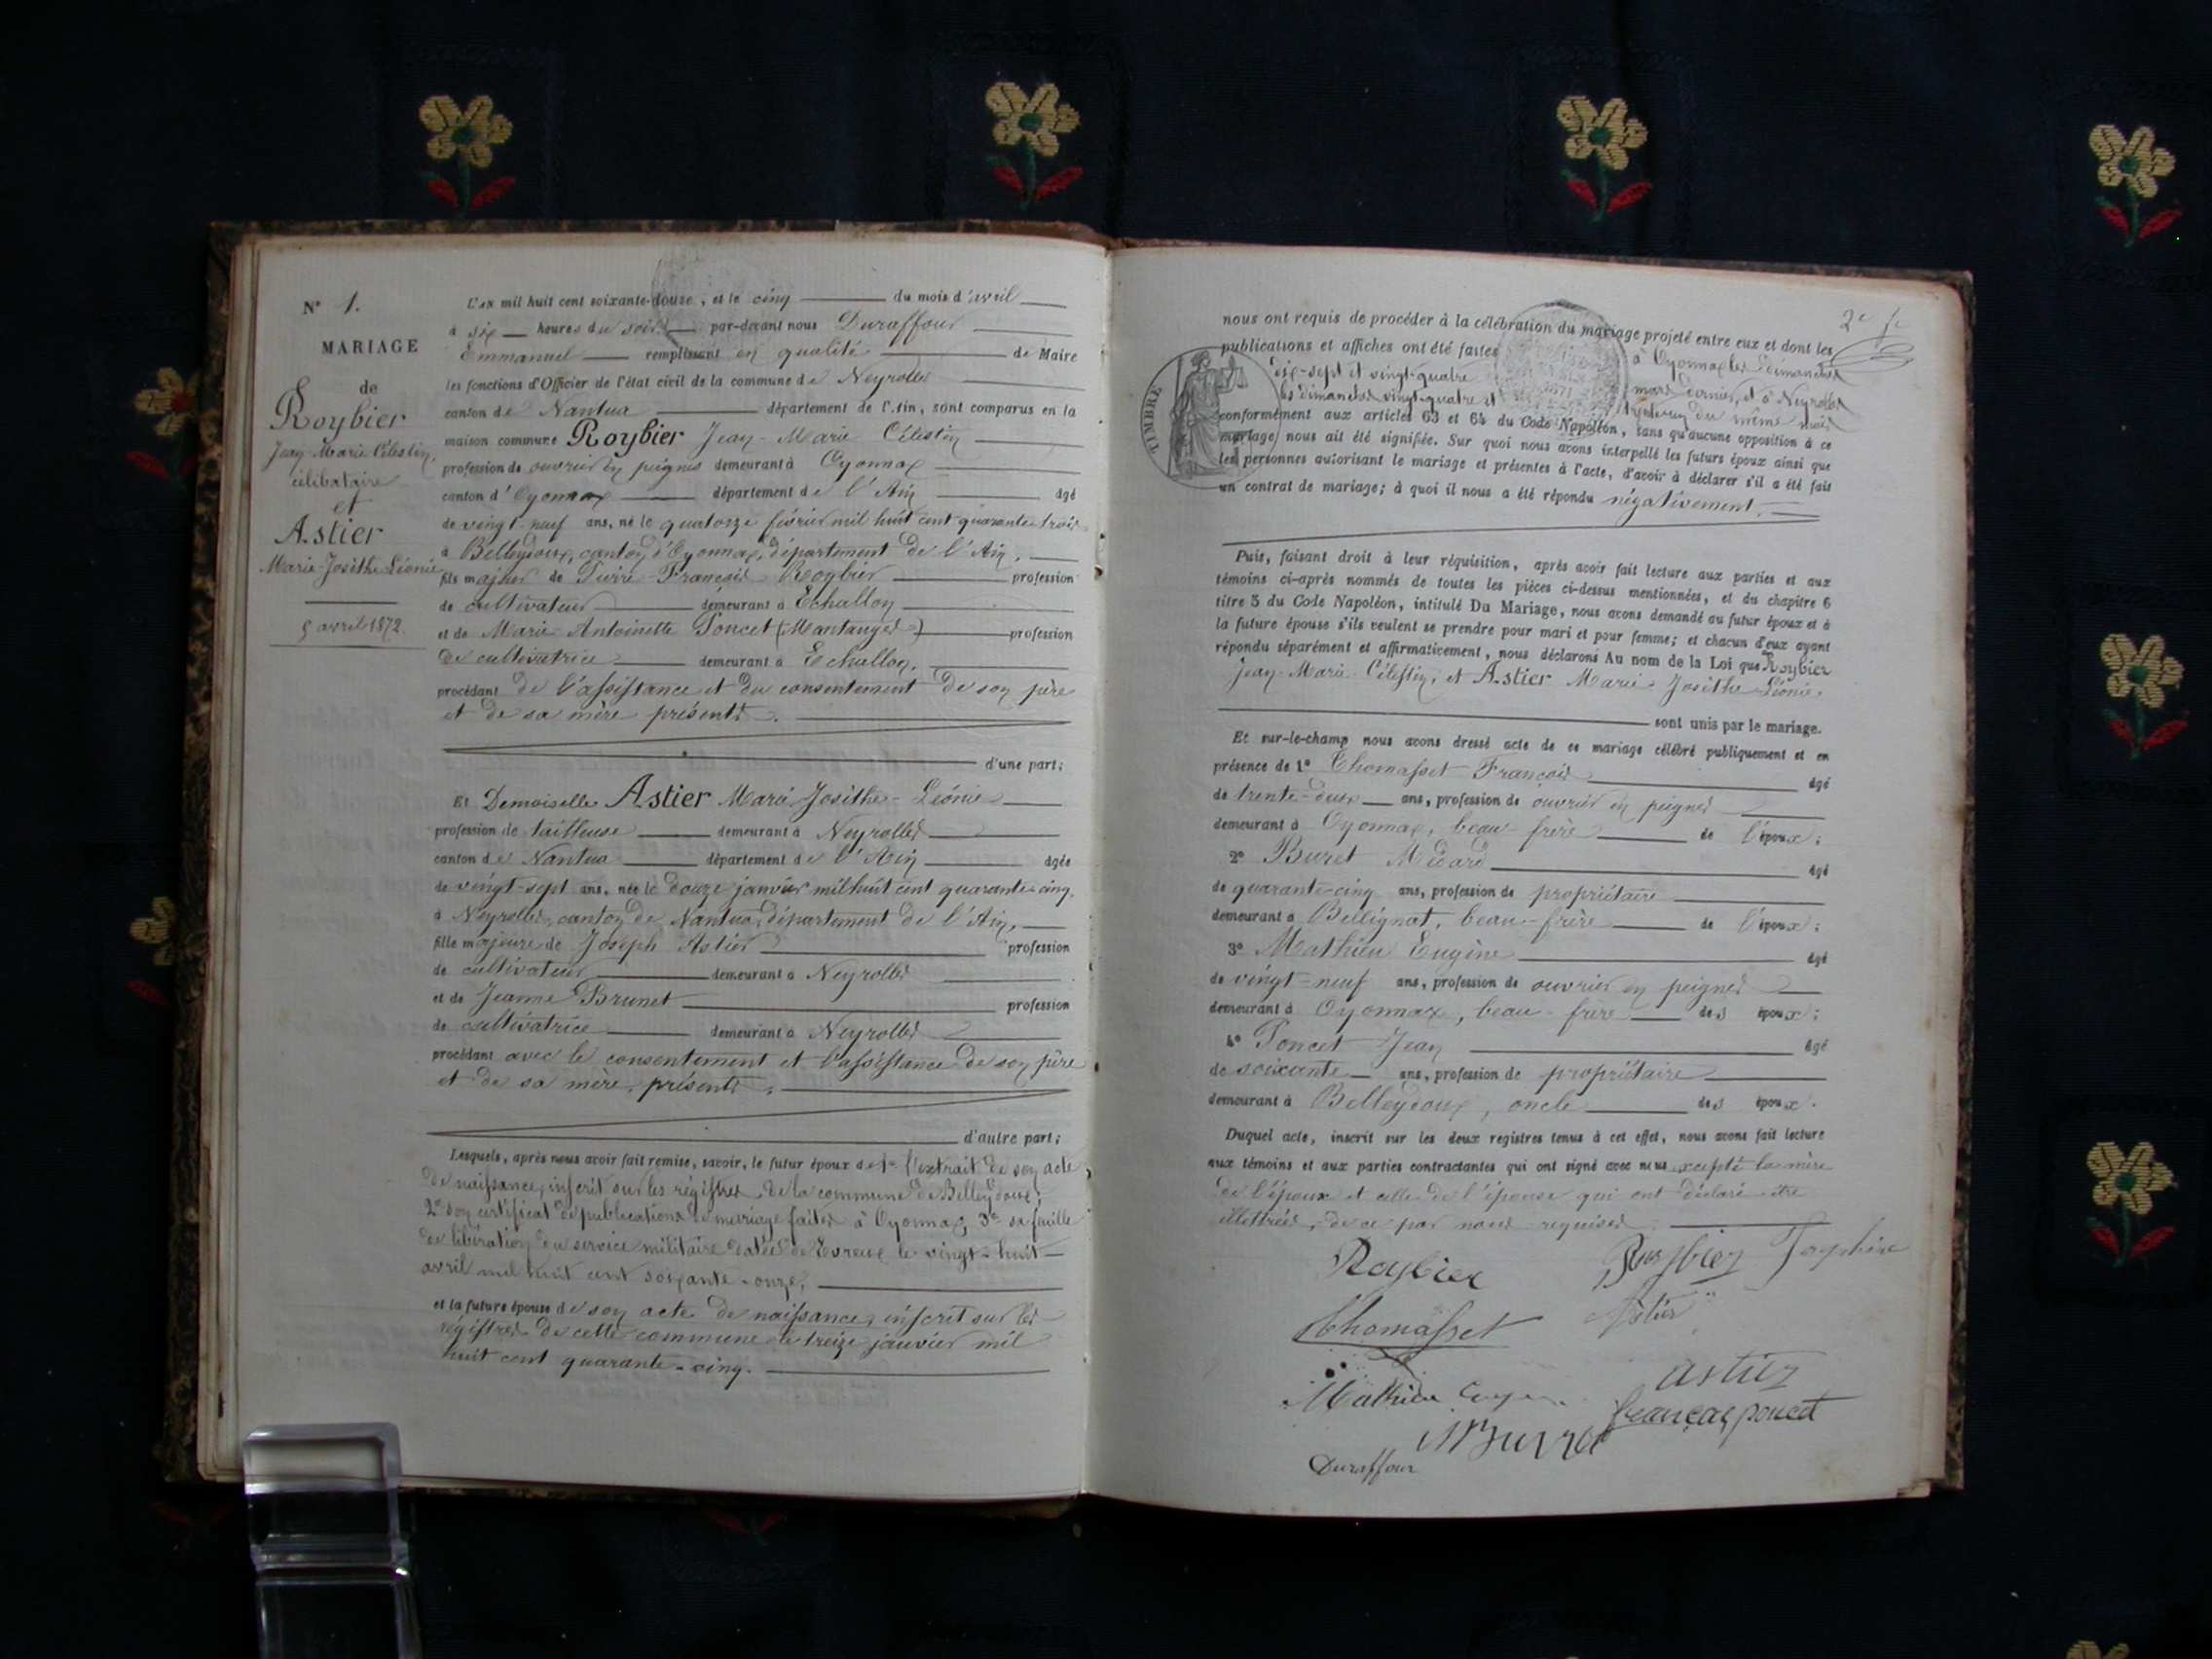 N° 1.
MARIAGE
de
Roybier
Jean Marie Célestin,
célibataire
et
Astier
Marie-Josèthe Léonie
5 avril 1872.
L'an mil huit cent soixante-douze, et le cinq du mois d'avril
à six heures du soir par-devant nous Duraffour
Emmanuel remplissant en qualité de Maire
les fonctions d'Officier de l'état civil de la commune de Neyrolles
canton de Nantua département de l'Ain, sont comparus en la
maison commune Roybier Jean-Marie Célestin
profession de ouvrier en peignes demeurant à Oyonnax
canton d'Oyonnax département de l'Ain âgé
de vingt-neuf ans, né le quatorze février mil huit cent quarante-trois
à Belleydoux, canton d'Oyonnax, département de l'Ain,
fils majeur de Pierre-François Roybier profession
de cultivateur demeurant à Echallon
et de Marie Antoinette Poncet (Mantanges) profession
de cultivatrice demeurant à Echallon,
procédant de l'assistance et du consentement de son père
et de sa mère présents.
d'une part;
Et Demoiselle Astier Marie Josèthe-Léonie
profession de tailleuse demeurant à Neyrolles
canton de Nantua département de l'Ain âgée
de vingt-sept ans, née le douze janvier mil huit cent quarante-cinq,
à Neyrolles, canton de Nantua, département de l'Ain,
fille majeure de Joseph Astier profession
de cultivateur demeurant à Neyrolles
et de Jeanne Brunet profession
de cultivatrice demeurant à Neyrolles
procédant avec le consentement et l'assistance de son père
et de sa mère, présents,
d'autre part;
Lesquels, après nous avoir fait remise, savoir, le futur époux de 1° l'extrait de son acte
de naissance, inscrit sur les régistres de la commune de Belleydoux;
2° son certificat de publications de mariage faites à Oyonnax, 3° sa feuille
de libération du service militaire datée de Evreux le vingt-huit
avril mil huit cent soixante-onze,
et la future épouse de son acte de naissance, inscrit sur les
régistres de cette commune le treize janvier mil
huit cent quarante-cinq.
2e
nous ont requis de procéder à la célébration du mariage projeté entre eux et dont les
publications et affiches ont été faites à Oyonnax les dimanches
dix-sept et vingt-quatre mars dernier, et à Neyrolles
les dimanches vingt-quatre et trente-un du même mois
TIMBRE
conformément aux articles 63 et 64 du Code Napoléon, sans qu'aucune opposition à ce
mariage nous ait été signifiée. Sur quoi nous avons interpellé les futurs époux ainsi que
les personnes autorisant le mariage et présentes à l'acte, d'avoir à déclarer s'il a été fait
un contrat de mariage; à quoi il nous a été répondu négativement.
Puis, faisant droit à leur réquisition, après avoir fait lecture aux parties et aux
témoins ci-après nommés de toutes les pièces ci-dessus mentionnées, et du chapitre 6
titre 5 du Code Napoléon, intitulé Du Mariage, nous avons demandé au futur époux et à
la future épouse s'ils veulent se prendre pour mari et pour femme; et chacun d'eux ayant
répondu séparément et affirmativement, nous déclarons Au nom de la Loi que Roybier
Jean-Marie Célestin, et Astier Marie Josèthe Léonie,
sont unis par le mariage.
Et sur-le-champ nous avons dressé acte de ce mariage célébré publiquement et en
présence de 1° Thomasset François âgé
de trente-deux ans, profession de ouvrier en peignes
demeurant à Oyonnax, beau-frère de l'époux;
2° Buret Médard âgé
de quarante-cinq ans, profession de propriétaire
demeurant à Bellignat, beau-frère de l'époux;
3° Mathieu Eugène âgé
de vingt-neuf ans, profession de ouvrier en peignes
demeurant à Oyonnax, beau-frère des époux;
4° Poncet Jean âgé
de soixante ans, profession de propriétaire
demeurant à Belleydoux, oncle des époux.
Duquel acte, inscrit sur les deux registres tenus à cet effet, nous avons fait lecture
aux témoins et aux parties contractantes qui ont signé avec nous excepté la mère
de l'époux et celle de l'épouse qui ont déclaré être
illettrées, de ce par nous requises.
Roybier Roybier Josephine
Thomasset Astier
astier
Mathieu
poncet
Duraffour